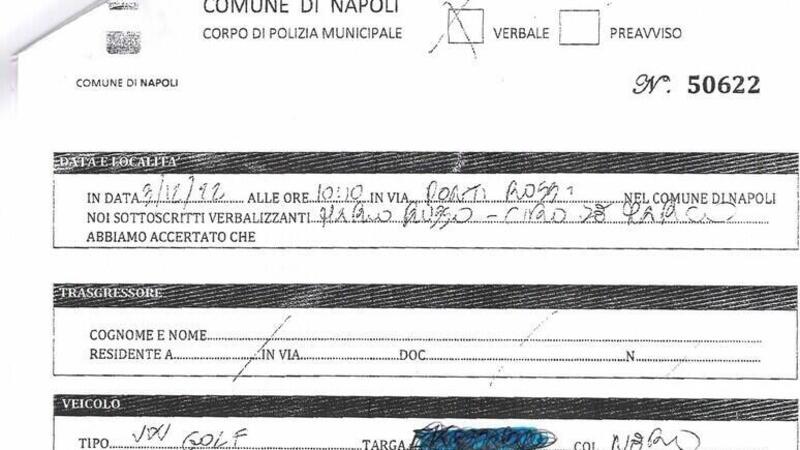 COMUNE DI NAPOLI
CORPO DI POLIZIA MUNICIPALE VERBALE PREAVVISO
COMUNE DI NAPOLI
N°. 50622
DATA E LOCALITA'
IN DATA 3/12/22 ALLE ORE 10:10 IN VIA PONTI ROSSI NEL COMUNE DI NAPOLI
NOI SOTTOSCRITTI VERBALIZZANTI RUSSO - CIRO
ABBIAMO ACCERTATO CHE
TRASGRESSORE
COGNOME E NOME
RESIDENTE A IN VIA DOC N
VEICOLO
TIPO VW GOLF TARGA COL. NERO